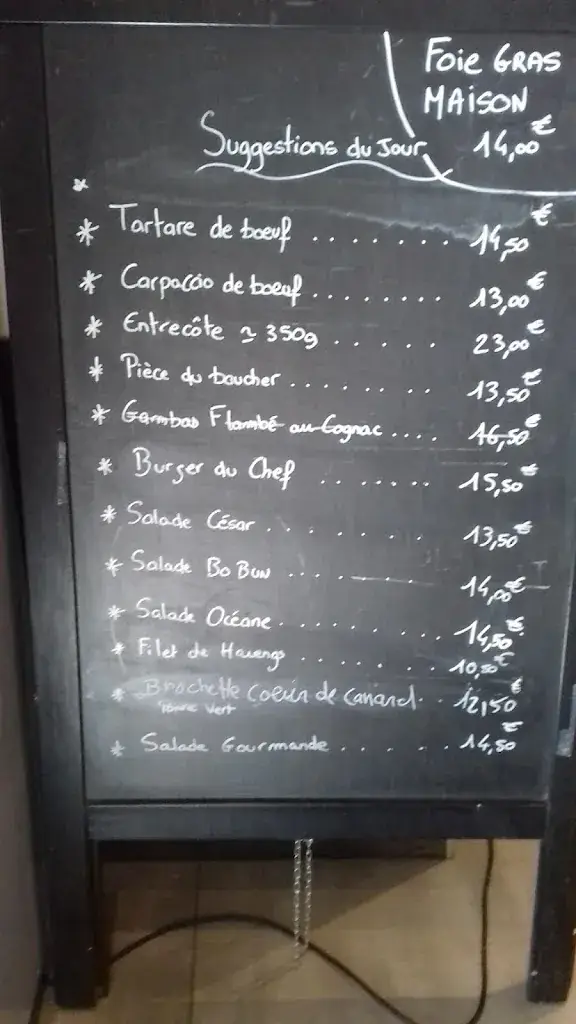 Foie GRAS
MAISON
14,00€
Suggestions du Jour
*
* Tartare de boeuf ....... 14,50€
* Carpaccio de boeuf ........ 13,00€
* Entrecôte ≃ 350g ...... 23,00€
* Pièce du boucher ........ 13,50€
* Gambas Flambé au Cognac .... 16,50€
* Burger du Chef ....... 15,50€
* Salade César ....... 13,50€
* Salade Bo Bun ....... 14,00€
* Salade Océane ........ 14,50€
* Filet de Harengs ........ 10,50€
* Brochette Coeur de Canard .. 12,50€
vert
* Salade Gourmande ..... 14,50€